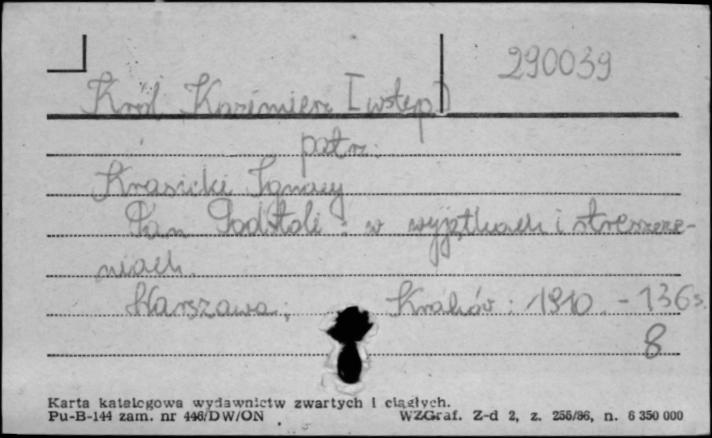 290039
Król Kazimierz [wstęp]
patrz:
Krasicki Ignacy
Pan Podstoli : w wyjątkach i streszcze-
niach.
Warszawa ; Kraków : 1910. - 136 s.
8
Karta katalogowa wydawnictw zwartych i ciągłych.
Pu-B-144 zam. nr 446/DW/ON WZGraf. Z-d 2, z. 256/86, n. 6 350 000